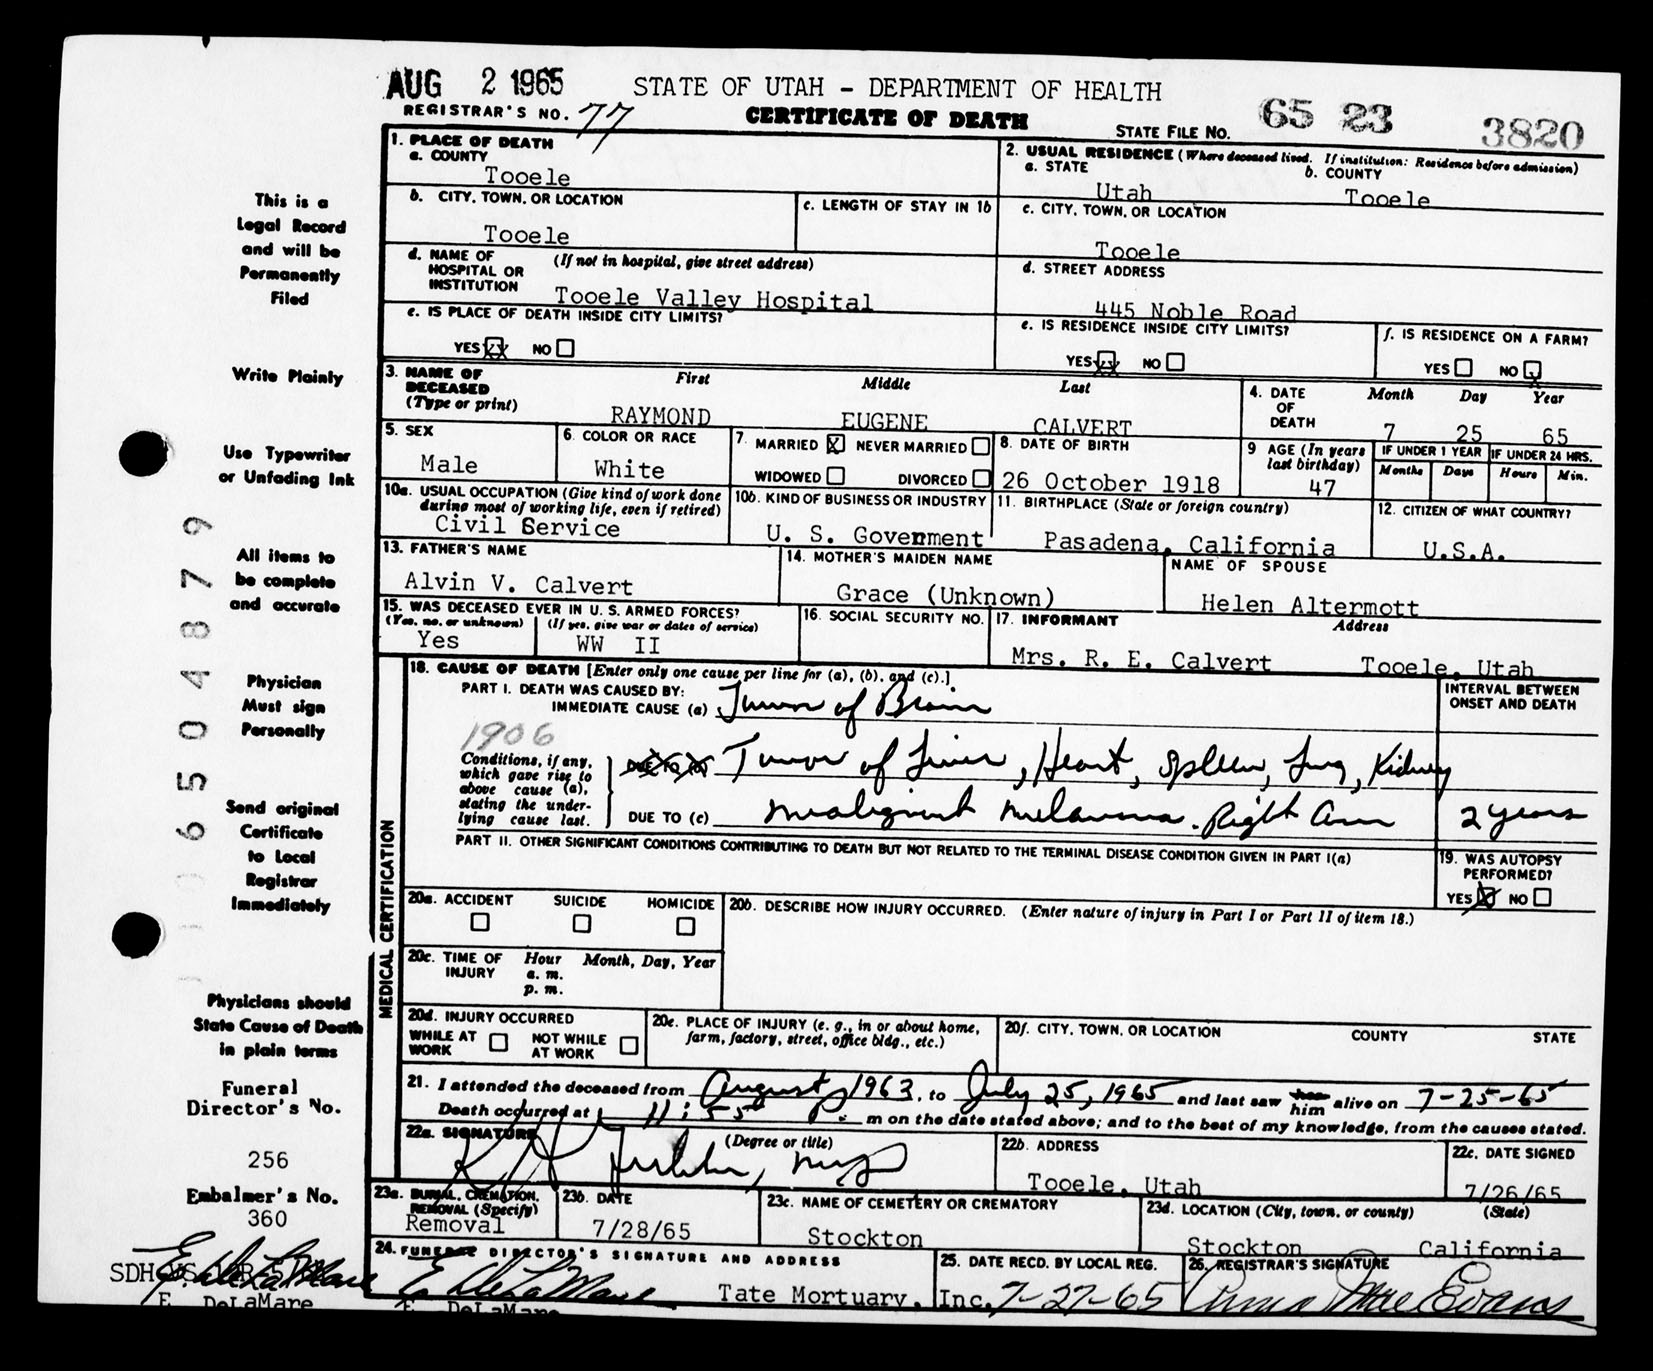 AUG 2 1965 STATE OF UTAH - DEPARTMENT OF HEALTH
REGISTRAR'S NO. 77 CERTIFICATE OF DEATH STATE FILE NO. 65 23 3820
1. PLACE OF DEATH
a. COUNTY
Tooele
2. USUAL RESIDENCE (Where deceased lived. If institution: Residence before admission)
a. STATE b. COUNTY
Utah Tooele
b. CITY, TOWN, OR LOCATION
Tooele
c. LENGTH OF STAY IN 1b
c. CITY, TOWN, OR LOCATION
Tooele
d. NAME OF HOSPITAL OR INSTITUTION (If not in hospital, give street address)
Tooele Valley Hospital
d. STREET ADDRESS
445 Noble Road
e. IS PLACE OF DEATH INSIDE CITY LIMITS?
YES XX NO
e. IS RESIDENCE INSIDE CITY LIMITS?
YES XX NO
f. IS RESIDENCE ON A FARM?
YES NO X
3. NAME OF DECEASED (Type or print) First Middle Last
RAYMOND EUGENE CALVERT
4. DATE OF DEATH Month Day Year
7 25 65
5. SEX
Male
6. COLOR OR RACE
White
7. MARRIED X NEVER MARRIED
WIDOWED DIVORCED
8. DATE OF BIRTH
26 October 1918
9 AGE (In years last birthday)
47
IF UNDER 1 YEAR IF UNDER 24 HRS.
Months Days Hours Min.
10a. USUAL OCCUPATION (Give kind of work done during most of working life, even if retired)
Civil Service
10b. KIND OF BUSINESS OR INDUSTRY
U. S. Govenment
11. BIRTHPLACE (State or foreign country)
Pasadena, California
12. CITIZEN OF WHAT COUNTRY?
U.S.A.
13. FATHER'S NAME
Alvin V. Calvert
14. MOTHER'S MAIDEN NAME
Grace (Unknown)
NAME OF SPOUSE
Helen Altermott
15. WAS DECEASED EVER IN U. S. ARMED FORCES?
(Yes, no, or unknown) (If yes, give war or dates of service)
Yes WW II
16. SOCIAL SECURITY NO.
17. INFORMANT Address
Mrs. R. E. Calvert Tooele, Utah
MEDICAL CERTIFICATION
18. CAUSE OF DEATH [Enter only one cause per line for (a), (b), and (c).]
PART I. DEATH WAS CAUSED BY:
IMMEDIATE CAUSE (a) Tumor of Brain
INTERVAL BETWEEN ONSET AND DEATH
1906
Conditions, if any, which gave rise to above cause (a), stating the underlying cause last.
DUE TO (b) Tumor of Liver, Heart, Spleen, Lung, Kidney
DUE TO (c) malignant melanoma. Right Arm 2 years
PART II. OTHER SIGNIFICANT CONDITIONS CONTRIBUTING TO DEATH BUT NOT RELATED TO THE TERMINAL DISEASE CONDITION GIVEN IN PART I(a)
19. WAS AUTOPSY PERFORMED?
YES X NO
20a. ACCIDENT SUICIDE HOMICIDE
20b. DESCRIBE HOW INJURY OCCURRED. (Enter nature of injury in Part I or Part II of item 18.)
20c. TIME OF INJURY Hour Month, Day, Year
a. m.
p. m.
20d. INJURY OCCURRED
WHILE AT WORK NOT WHILE AT WORK
20e. PLACE OF INJURY (e. g., in or about home, farm, factory, street, office bldg., etc.)
20f. CITY, TOWN, OR LOCATION COUNTY STATE
21. I attended the deceased from August, 1963, to July 25, 1965 and last saw her him alive on 7-25-65
Death occurred at 11:55 P. m on the date stated above; and to the best of my knowledge, from the causes stated.
22a. SIGNATURE (Degree or title)
22b. ADDRESS
Tooele, Utah
22c. DATE SIGNED
7/26/65
23a. BURIAL, CREMATION, REMOVAL (Specify)
Removal
23b. DATE
7/28/65
23c. NAME OF CEMETERY OR CREMATORY
Stockton
23d. LOCATION (City, town, or county) (State)
Stockton California
24. FUNERAL DIRECTOR'S SIGNATURE AND ADDRESS
E. DeLaMare Tate Mortuary, Inc.
E. DeLaMare
25. DATE RECD. BY LOCAL REG.
7-27-65
26. REGISTRAR'S SIGNATURE
Mae Evans
This is a
Legal Record
and will be
Permanently
Filed
Write Plainly
Use Typewriter
or Unfading Ink
All items to
be complete
and accurate
Physician
Must sign
Personally
Send original
Certificate
to Local
Registrar
Immediately
Physicians should
State Cause of Death
in plain terms
Funeral
Director's No.
256
Embalmer's No.
360
E. DeLaMare
E. DeLaMare
0 6 5 0 4 8 7 9